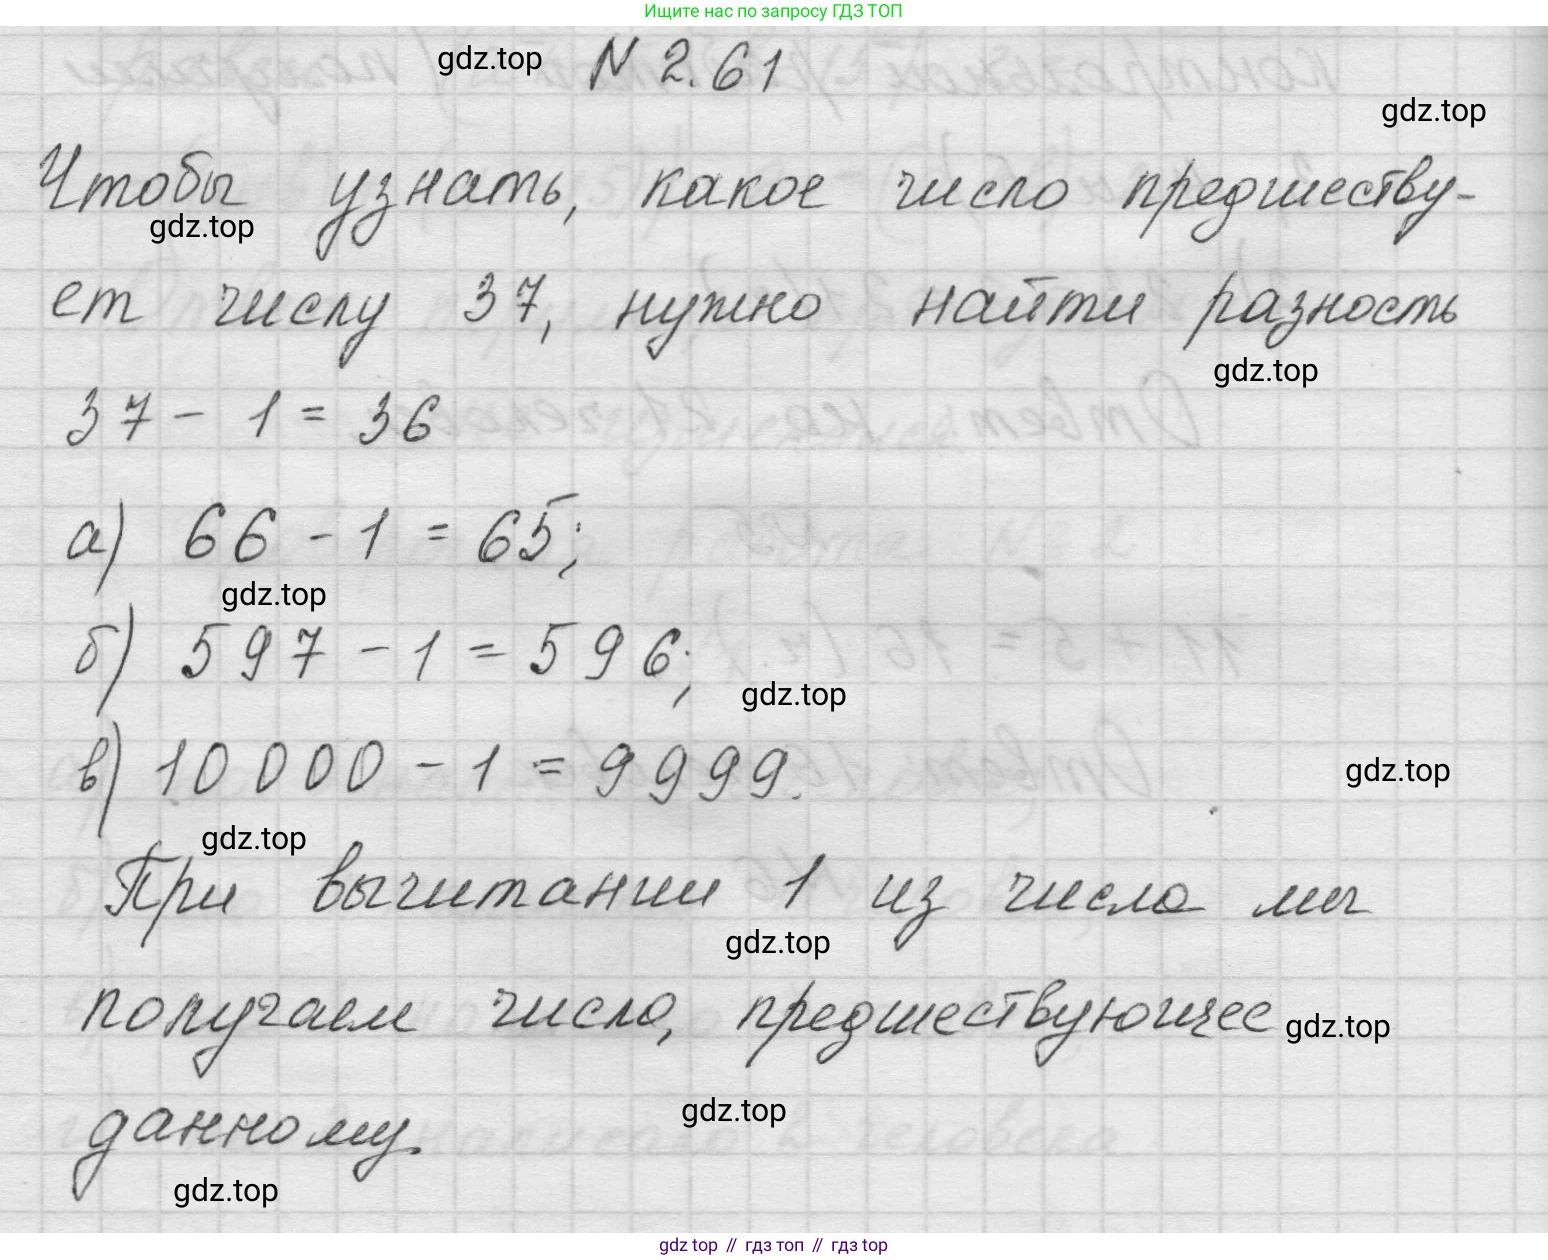 Ищите нас по запросу ГДЗ ТОП
gdz.top N 2.61
gdz.top
Чтобы узнать, какое число предшеству-
gdz.top
ет числу 37, нужно найти разность
gdz.top
37 - 1 = 36
а) 66 - 1 = 65;
gdz.top
б) 597 - 1 = 596;
gdz.top
в) 10 000 - 1 = 9999.
gdz.top
gdz.top
При вычитании 1 из числа мы
gdz.top
получаем число, предшествующее gdz.top
данному.
gdz.top
gdz.top
gdz top // гдз топ // гдз top